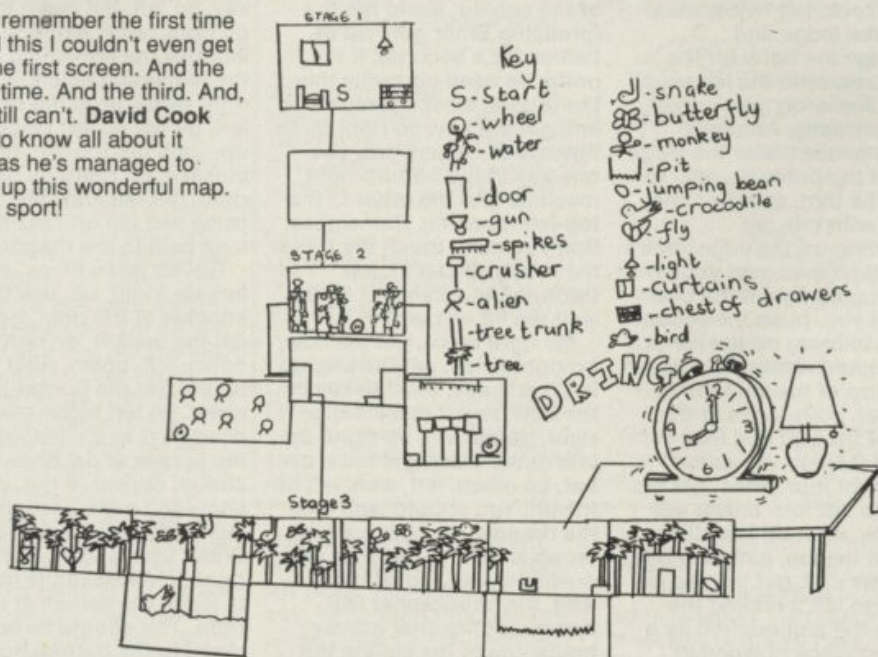 remember the first time
this I couldn't even get
first screen. And the
time. And the third. And,
still can't. David Cook
to know all about it
as he's managed to
up this wonderful map.
sport!
STAGE 1
S
STAGE 2
Key
S. Start
-wheel
-water
-door
-gun
-spikes
-crusher
-alien
-tree trunk
-tree
-snake
-butterfly
-monkey
-pit
-jumping bean
-crocodile
-fly
-light
-curtains
-chest of drawers
-bird
DRING
12
9 3
6
Stage3